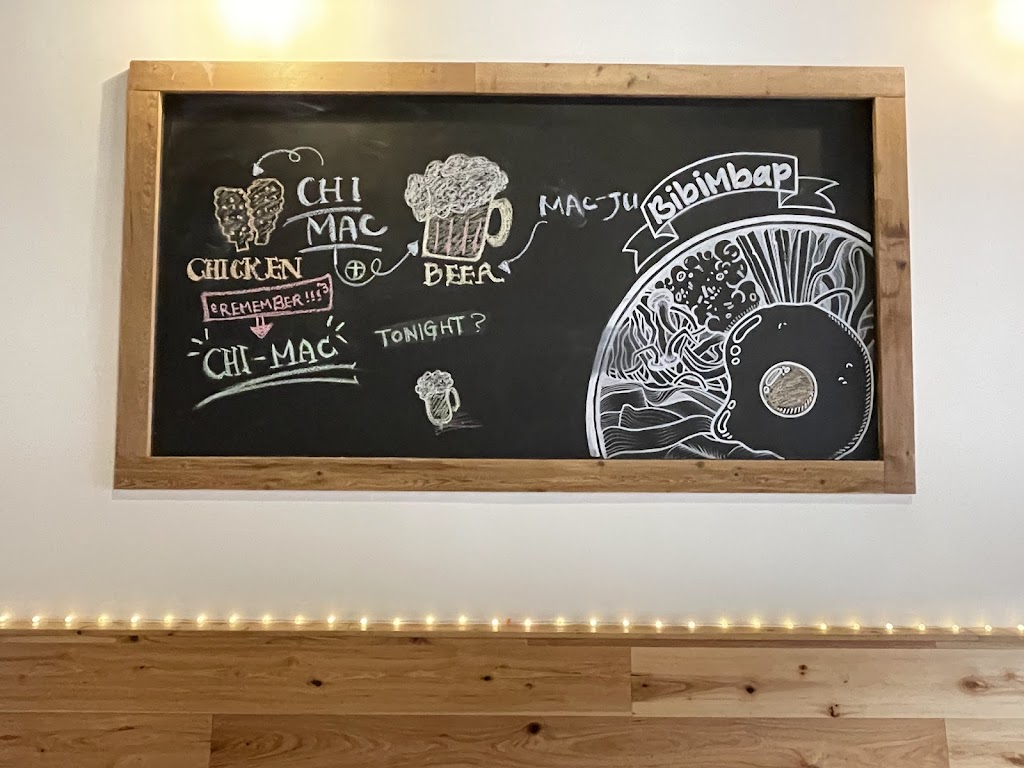 CHI
MAC
CHICKEN
REMEMBER!!!
CHI-MAC
BEER
MAC-JU
TONIGHT?
BibiMbap